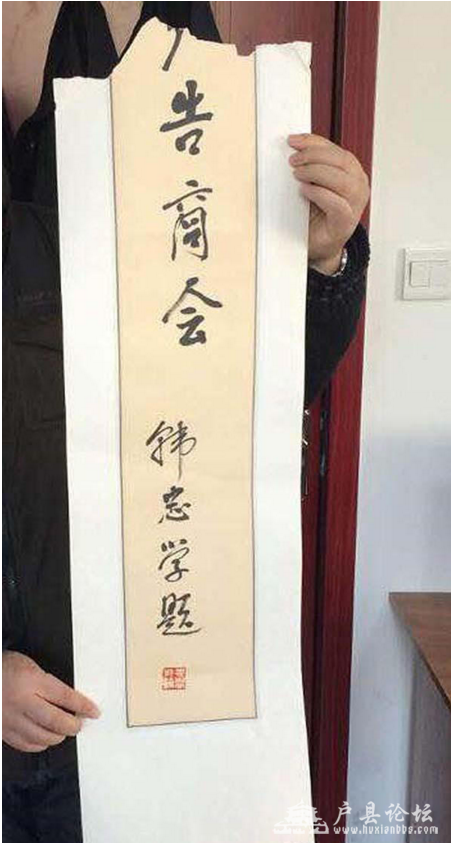 告商会
韩忠学题
户县论坛
www.huxianbbs.com